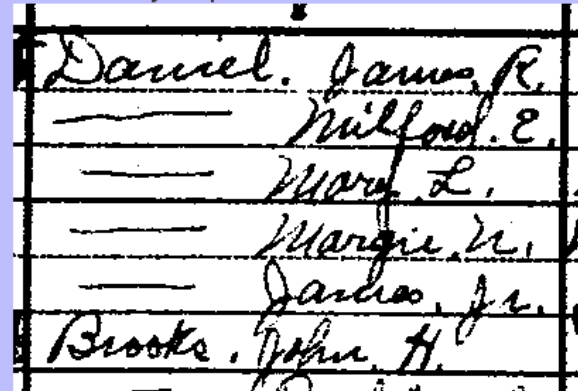 Daniel. James. R.
—— Milford. E.
—— Mary. L.
—— Margie. N.
—— James, Jr.
Brooks. John. H.